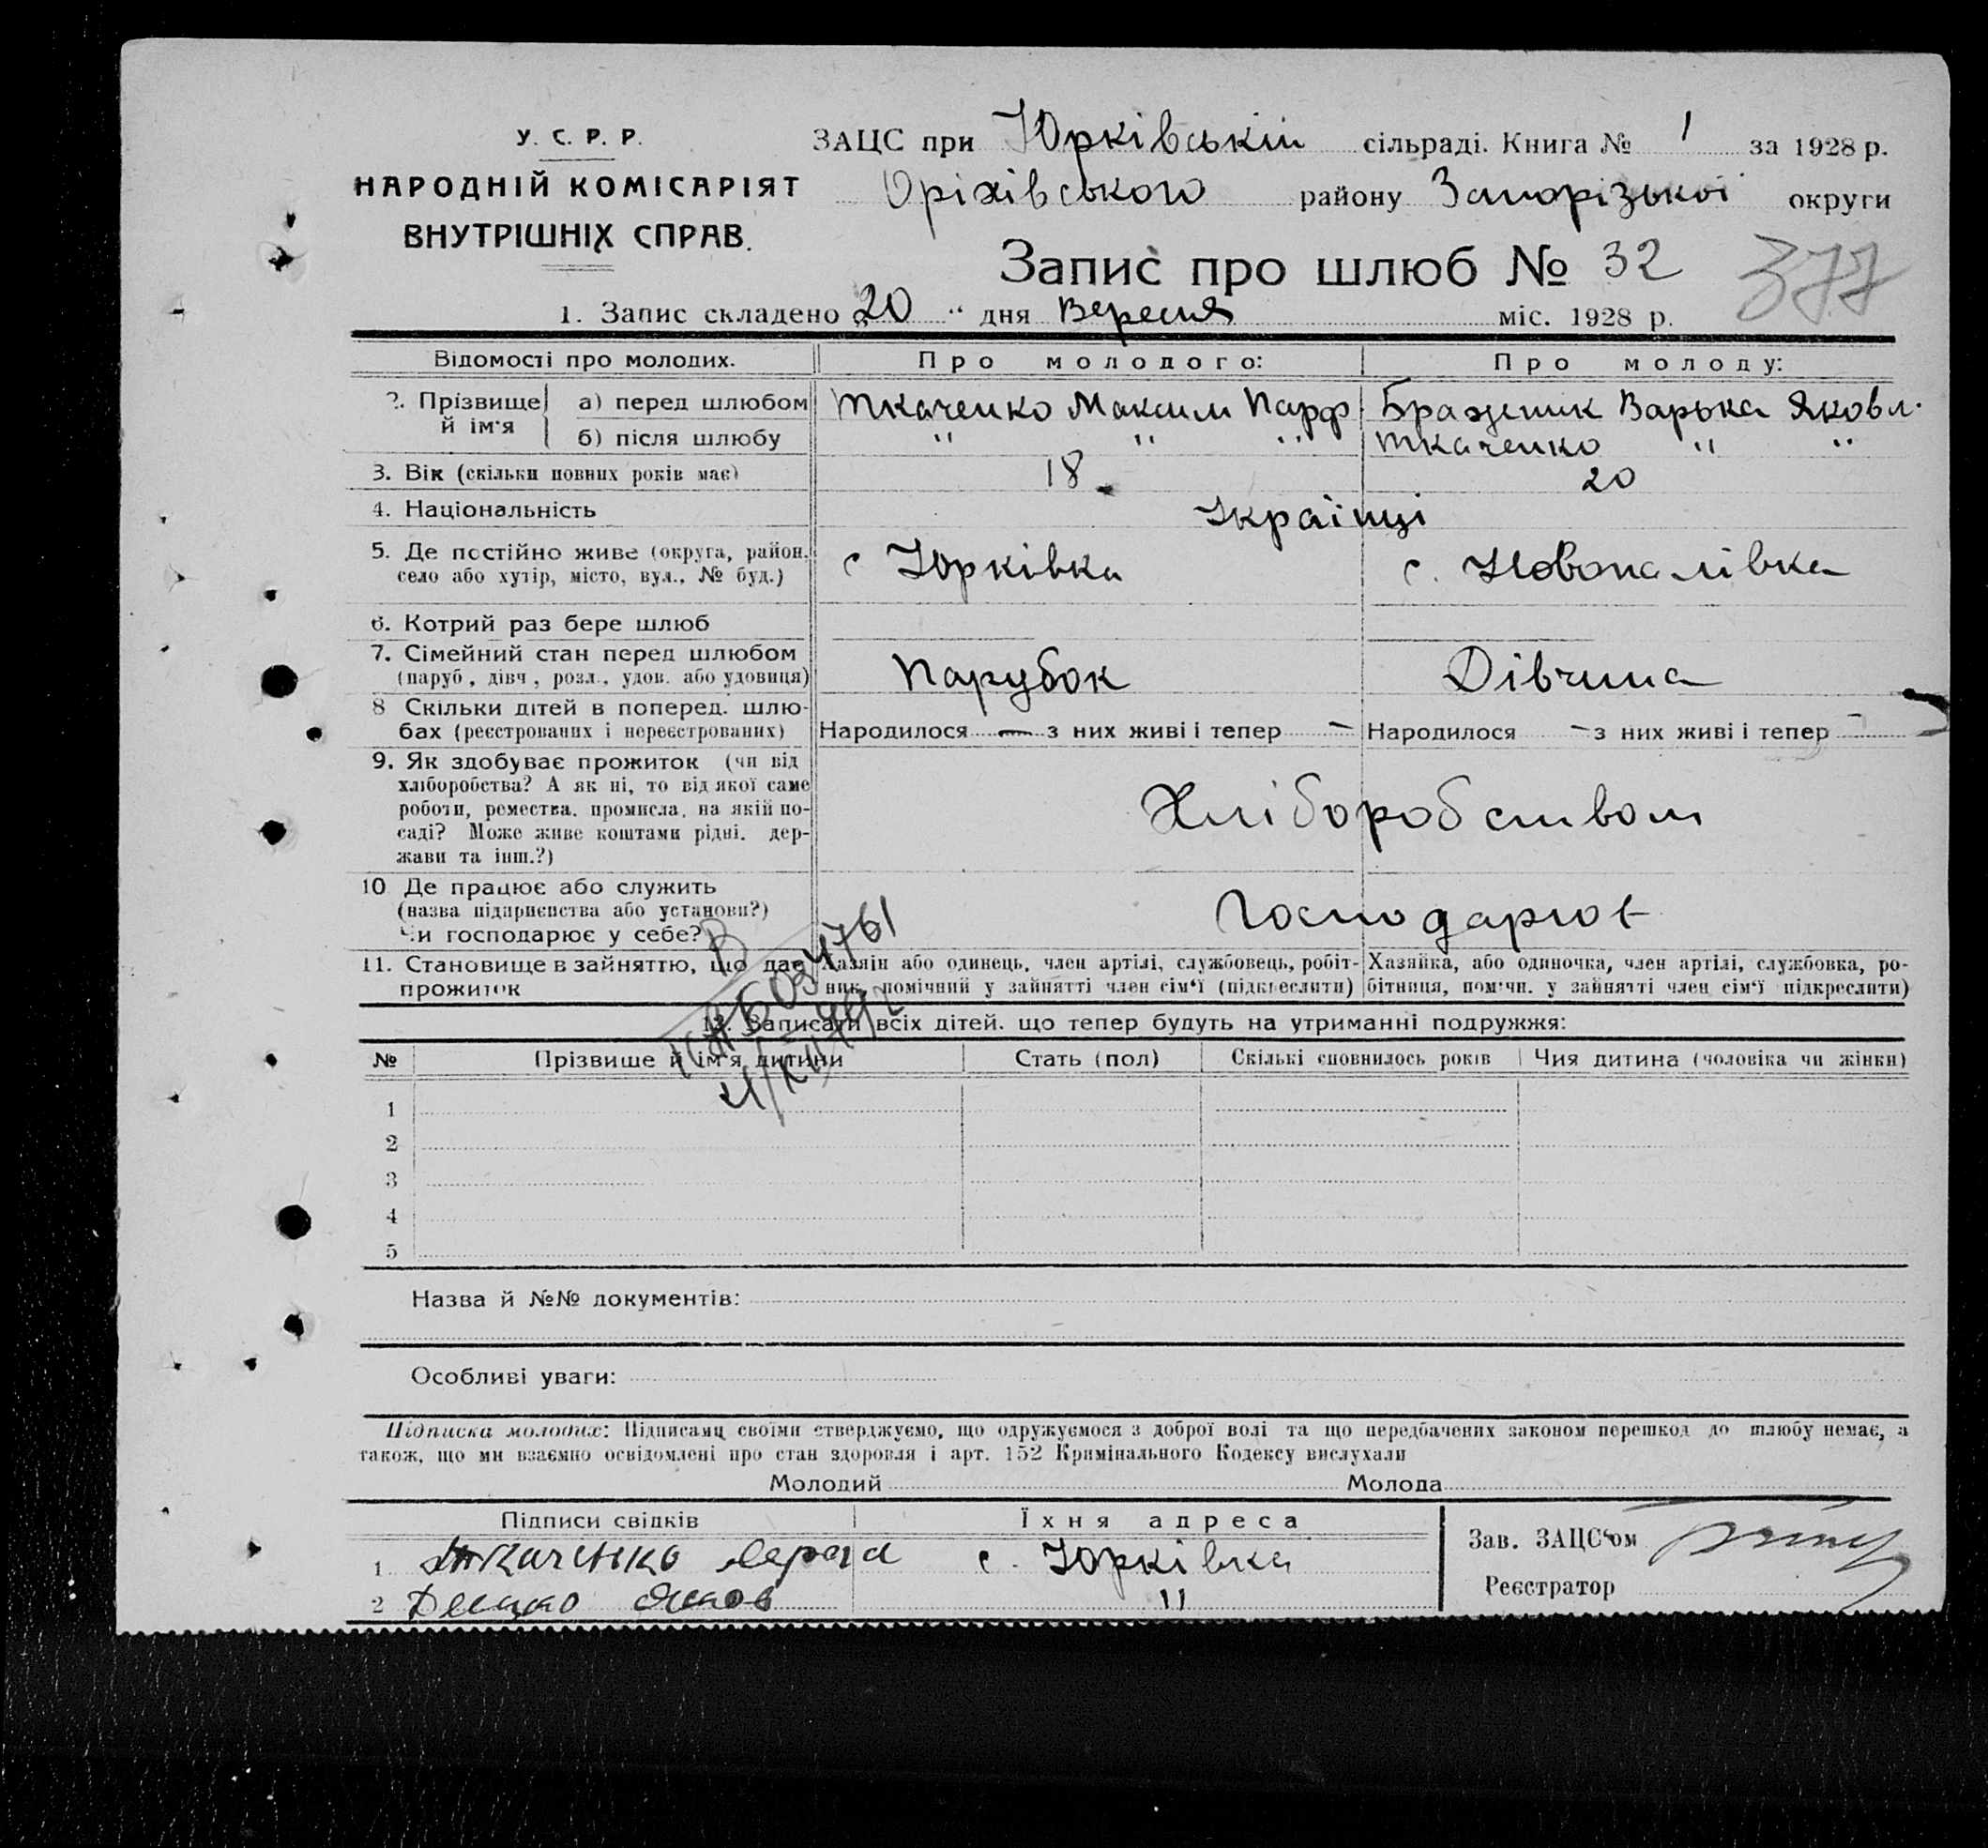 У. С. Р. Р.
НАРОДНІЙ КОМІСАРІЯТ
ВНУТРІШНІХ СПРАВ.
ЗАЦС при Юрківській сільраді. Книга № 1 за 1928 р.
Оріхівського району Запорізької округи
Запис про шлюб № 32
377
1. Запис складено „20“ дня Вересня міс. 1928 р.
Відомості про молодих. Про молодого: Про молоду:
2. Прізвище й ім'я а) перед шлюбом Ткаченко Максим Парф Бражник Варька Яковл.
б) після шлюбу " " " Ткаченко " "
3. Вік (скільки повних років має) 18 20
4. Національність Українці
5. Де постійно живе (округа, район.
село або хутір, місто, вул., № буд.) с Юрківка с. Новопалівка
6. Котрий раз бере шлюб
7. Сімейний стан перед шлюбом
(паруб, дівч, розл., удов. або удовиця) Парубок Дівчина
8 Скільки дітей в поперед. шлю-
бах (реєстрованих і нереєстрованих) Народилося — з них живі і тепер — Народилося — з них живі і тепер —
9. Як здобуває прожиток (чи від
хліборобства? А як ні, то від якої саме
роботи, ремества, промисла, на якій по-
саді? Може живе коштами рідні. дер-
жави та інш.?)
Хліборобством
10 Де працює або служить
(назва підприємства або установи?)
Чи господарює у себе?
Господарюють
11. Становище в зайняттю, що дає
прожиток
Хазяїн або одинець, член артілі, службовець, робіт-
ник, помічний у зайнятті член сім'ї (підкреслити)
Хазяйка, або одиночка, член артілі, службовка, ро-
бітниця, помічн. у зайнятті член сім'ї підкреслити)
12. Записати всіх дітей. що тепер будуть на утриманні подружжя:
№ Прізвише й ім'я дитини Стать (пол) Скількі сповнилось років Чия дитина (чоловіка чи жінки)
1
2
3
4
5
Назва й №№ документів:
Особливі уваги:
Підписка молодих: Підписами своїми стверджуємо, що одружуємося з доброї волі та що передбачених законом перешкод до шлюбу немає, а
також, що ми взаємно освідомлені про стан здоровля і арт. 152 Кримінального Кодексу вислухали
Молодий Молода
Підписи свідків Їхня адреса
1 Ткаченко с. Юрківка
2 Яков "
Зав. ЗАЦС'ом
Реєстратор